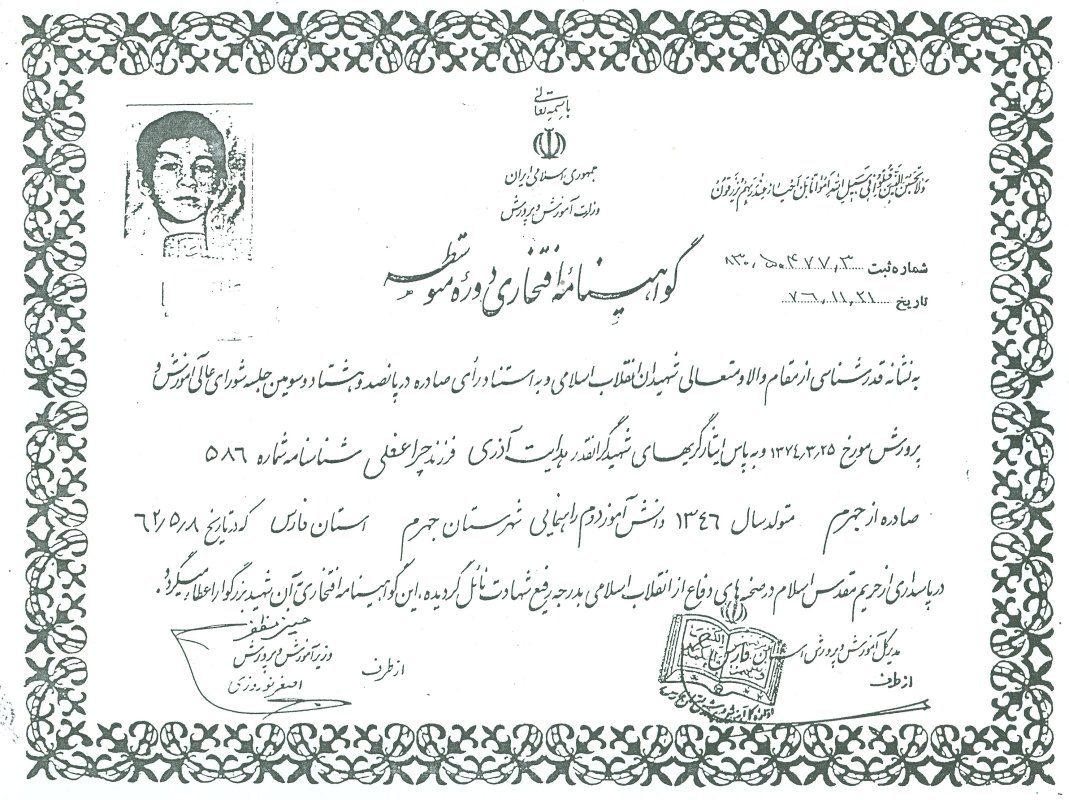 باسمه تعالی
جمهوری اسلامی ایران
وزارت آموزش و پرورش
ولا تحسبن الذین قتلوا فی سبیل الله امواتا بل احیاء عند ربهم یرزقون
شماره ثبت ۸۳۰٫۵۰۴۷۷٫۳
تاریخ ۷۶٫۱۱٫۲۱
گواهینامه افتخاری دوره متوسطه
به نشانه قدرشناسی از مقام والا و متعالی شهیدان انقلاب اسلامی و به استناد رأی صادره در پانصد و هشتاد و سومین جلسه شورای عالی آموزش و
پرورش مورخ ۱۳۷۴٫۳٫۲۵ و به پاس ایثارگریهای شهید گرانقدر هدایت آذری فرزند چراغعلی شناسنامه شماره ۵۸۶
صادره از جهرم متولد سال ۱۳۴۶ دانش آموز دوم راهنمایی شهرستان جهرم استان فارس که در تاریخ ۶۲٫۵٫۸
در پاسداری از حریم مقدس اسلام در صحنه های دفاع از انقلاب اسلامی بدرجه رفیع شهادت نائل گردیده، این گواهینامه افتخاری آن شهید بزرگوار اعطاء میگردد.
مدیر کل آموزش و پرورش استان فارس
از طرف
حسین مظفر
وزیر آموزش و پرورش
از طرف
اصغر نوروزی